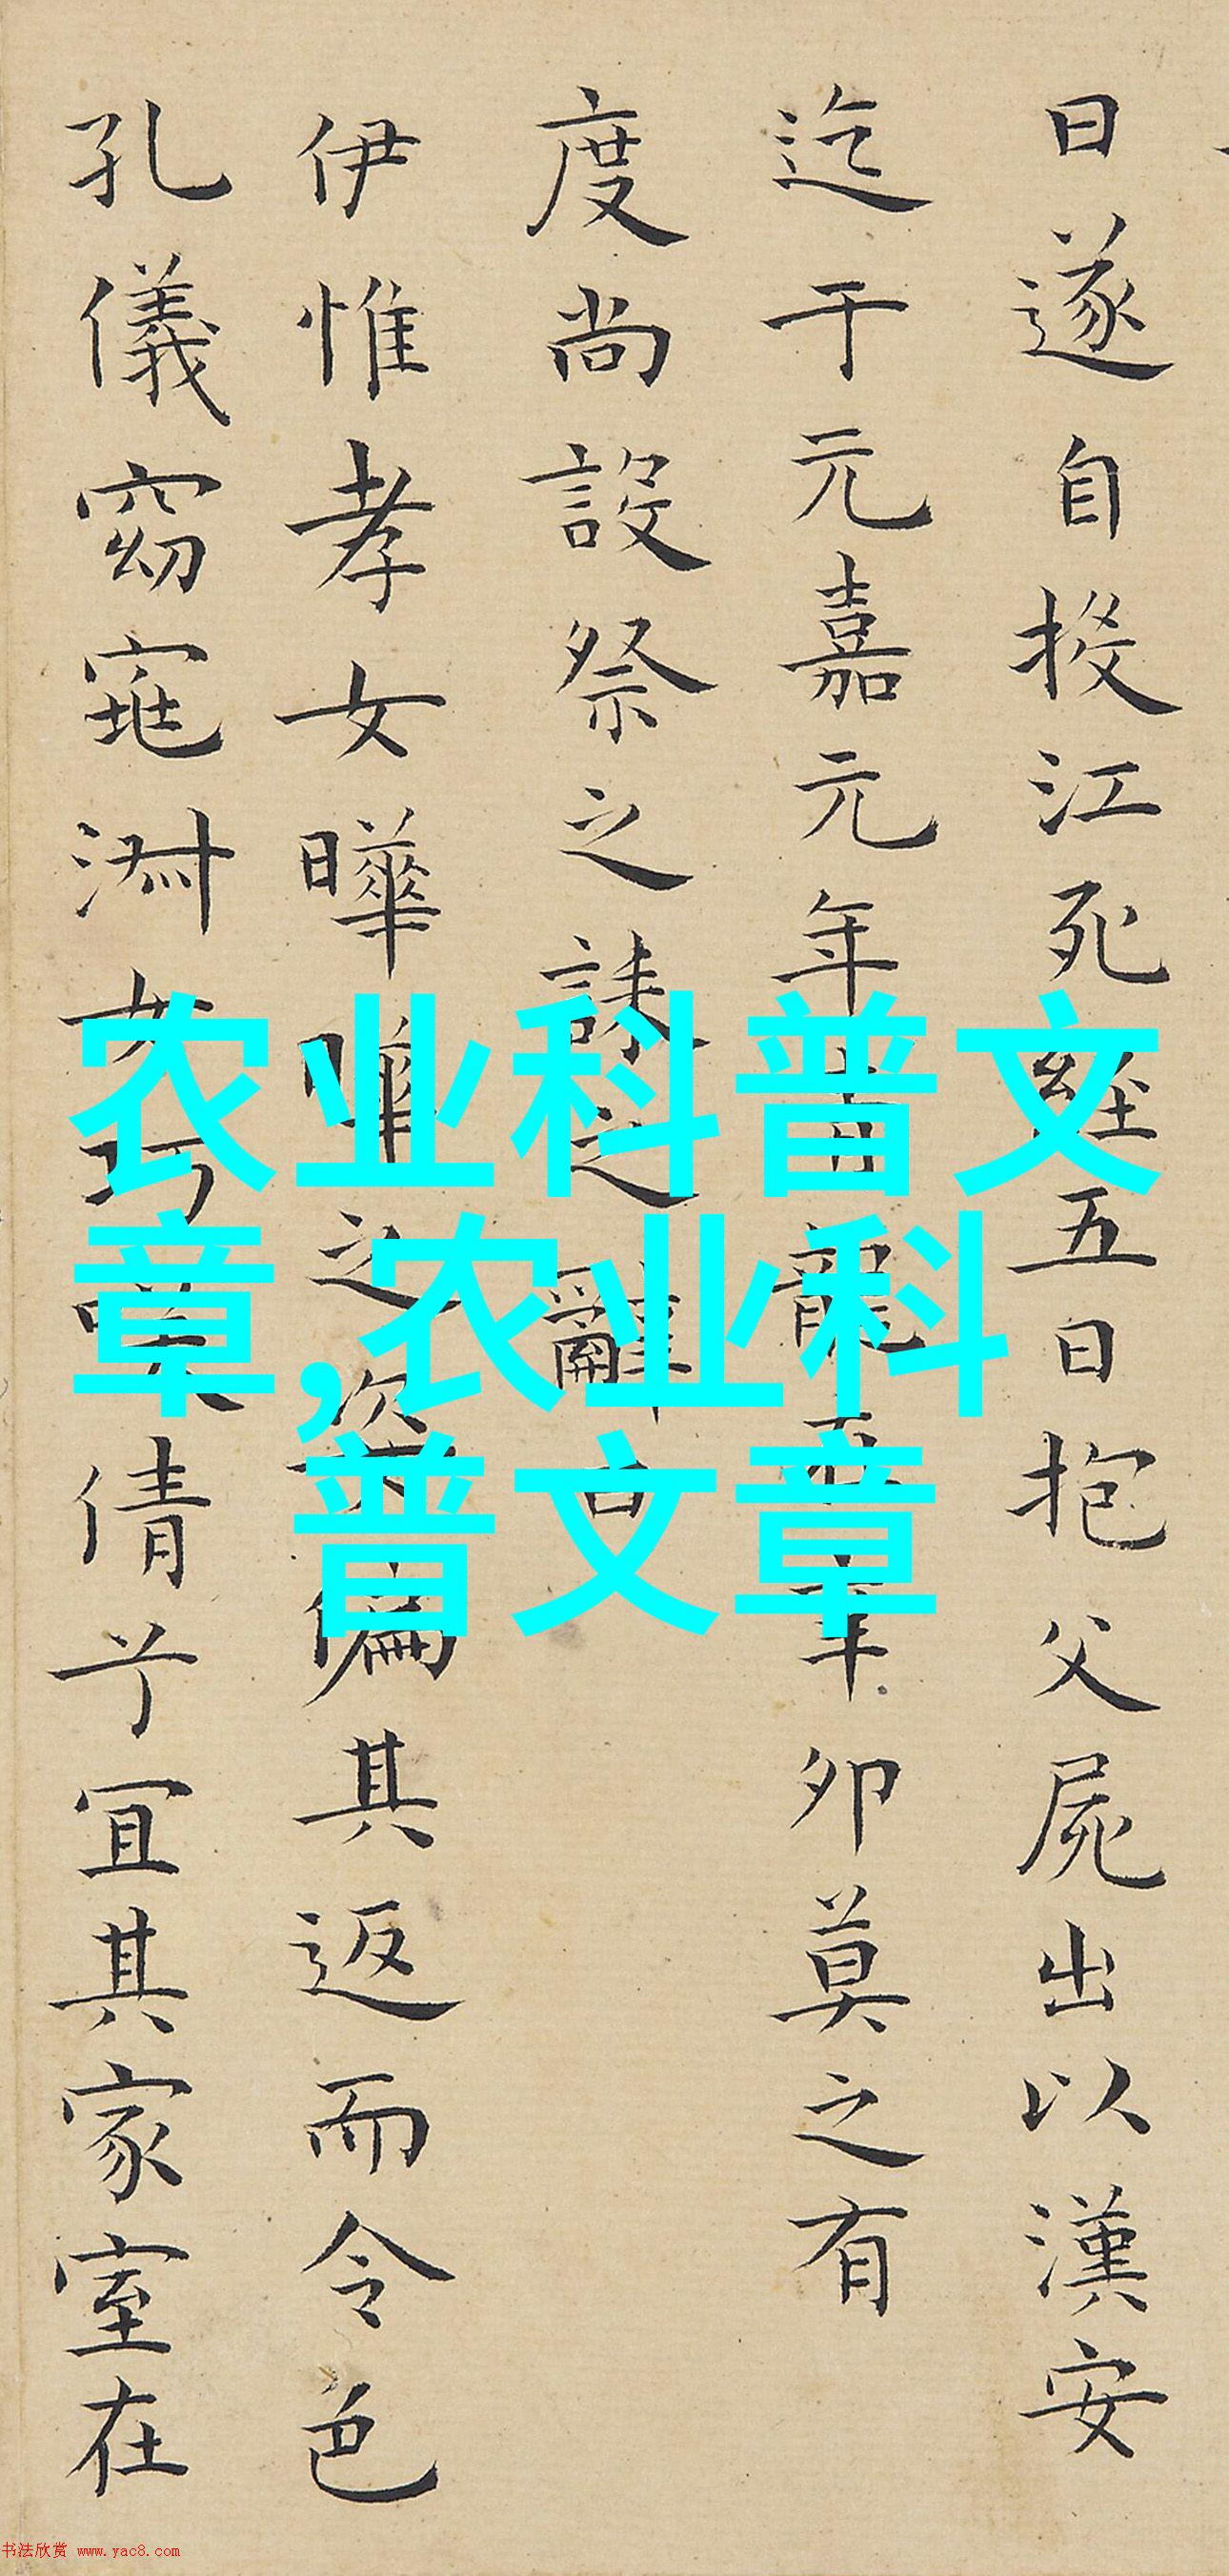 日遂自投江死經五日抱父屍出以漢安
迄于元嘉元年青龍在辛卯莫之有
度尚設祭之誄之辭曰
伊惟孝女曄曄之姿偏其返而令色
孔儀窈窕淑女巧笑倩兮宜其家室在
农业科普文
章,农业科
普文章
书法欣赏 www.yac8.com